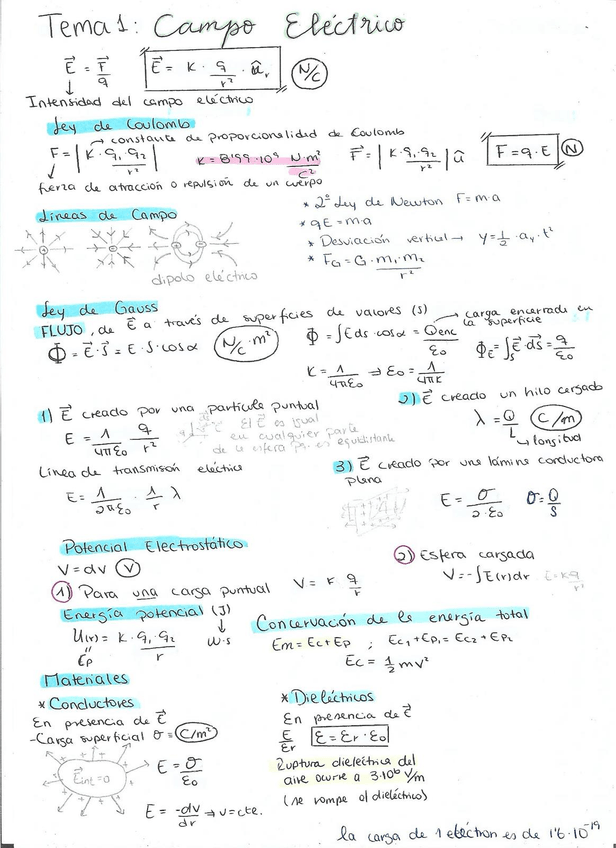 Tema 1: Campo Eléctrico
E⃗ = F⃗/q   E⃗ = K · q/r² · û_r   N/C
Intensidad del campo eléctrico
Ley de Coulomb
→ constante de proporcionalidad de Coulomb
F = |K·q₁·q₂/r²|   K = 8'99·10⁹ N·m²/C²   F⃗ = |K·q₁·q₂/r²| û   F = q·E   N
fuerza de atracción o repulsión de un cuerpo
Líneas de Campo
dipolo eléctrico
* 2º Ley de Newton F=m·a
* qE=m·a
* Desviación vertical → y = 1/2 · a_y · t²
* F_G = G · m₁·m₂/r²
Ley de Gauss
FLUJO, de E⃗ a través de superficies de valores (S)
→ carga encerrada en la superficie
Φ = E⃗·S⃗ = E·S·cosα   N/C · m²   Φ = ∫E ds·cosα = Qenc/ε₀   Φ_E = ∫_S E⃗·dS⃗ = q/ε₀
K = 1/4πε₀ ⇒ ε₀ = 1/4πK
1) E⃗ creado por una partícula puntual
E = 1/4πε₀ · q/r²
El E⃗ es igual
en cualquier parte
de la esfera pq. es equidistante
Línea de transmisón eléctrica
E = 1/2πε₀ · 1/r λ
2) E⃗ creado un hilo cargado
λ = Q/L   C/m
→ longitud
3) E⃗ creado por una lámina conductora
plana
E = σ/2·ε₀   σ = Q/S
Potencial Electrostático
V = dv   V
1) Para una carga puntual   V = K q/r
2) Esfera cargada
V = -∫E(r)dr   E = Kq/r²
Energía potencial (J)
U(r) = K·q₁·q₂/r   W·s
Ep
Concervación de la energía total
Em = Ec+Ep ; Ec₁+Ep₁ = Ec₂+Ep₂
Ec = 1/2 mv²
Materiales
* Conductores
En presencia de E⃗
-Carga superficial σ = C/m²
E⃗int=0
E = σ/ε₀
E = -dv/dr ⇒ v=cte.
* Dieléctricos
En presencia de E⃗
E/εr   ε = εr · ε₀
Ruptura dieléctrica del
aire ocurre a 3·10⁶ V/m
(se rompe el dieléctrico)
la carga de 1 electrón es de 1'6·10⁻¹⁹